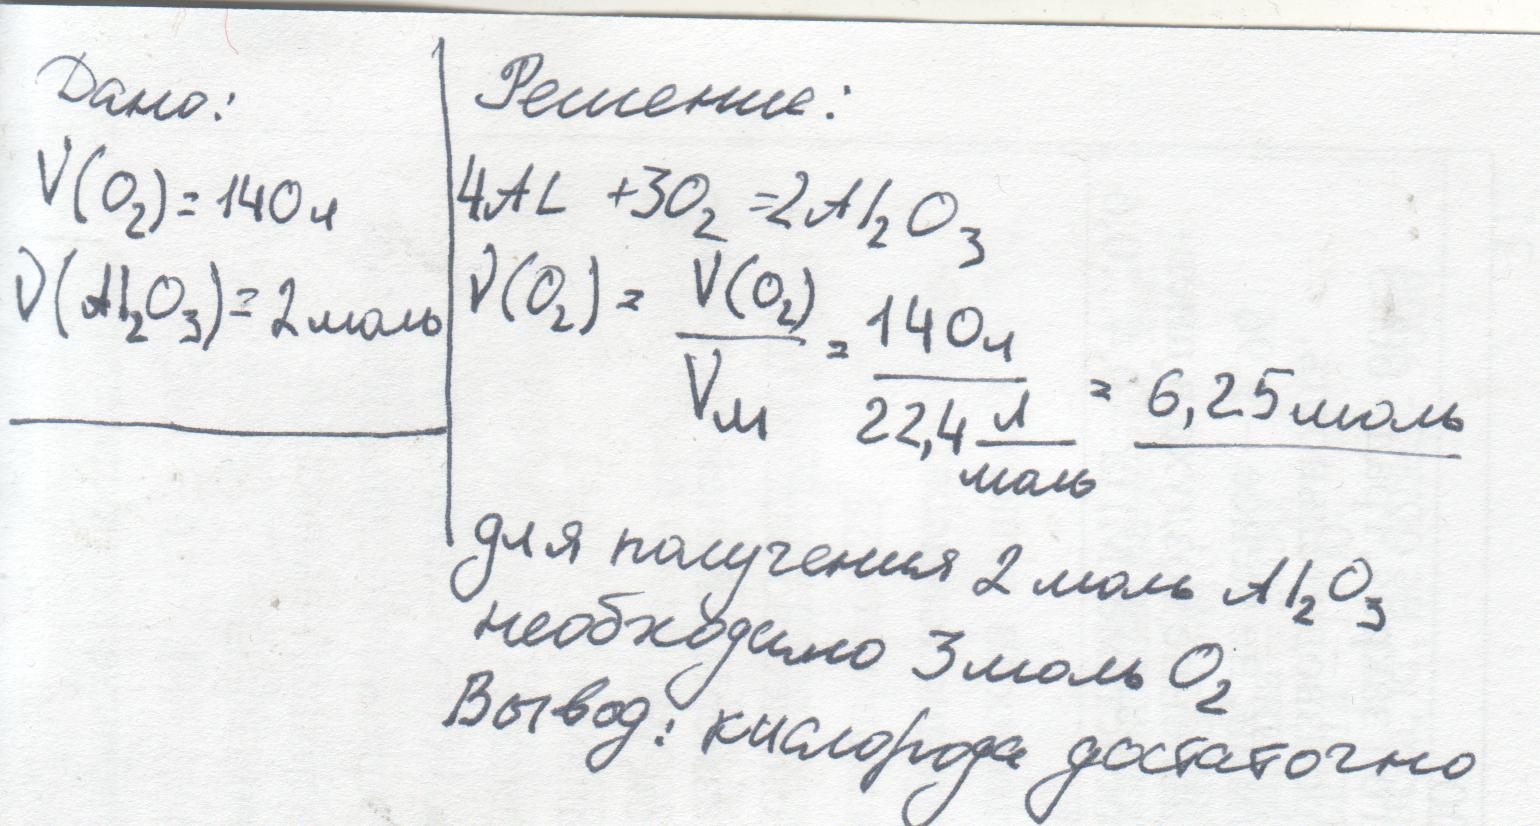 Дано:
V(O₂)=140л
ν(Al₂O₃)=2моль
Решение:
4AL +3O₂ =2Al₂O₃
ν(O₂) = V(O₂)/Vм = 140л/22,4 л/моль = 6,25моль
для получения 2 моль Al₂O₃
необходимо 3 моль O₂
Вывод: кислорода достаточно